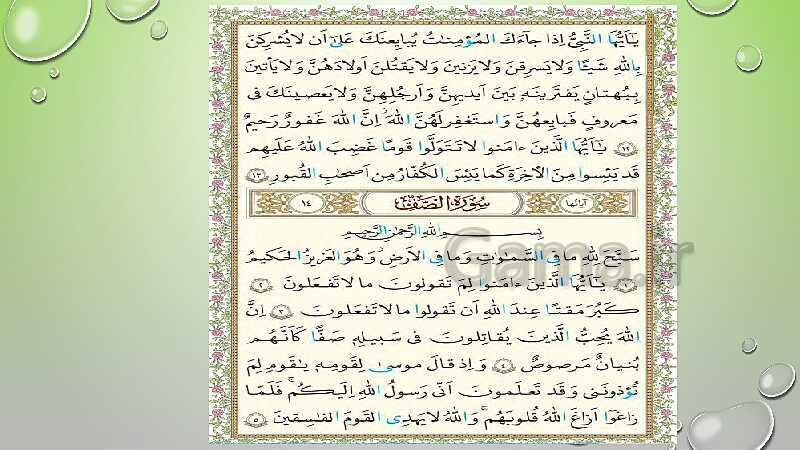 يٰٓاَيُّهَا النَّبِيُّ اِذا جآءَكَ المُؤمِناتُ يُبايِعنَكَ عَلىٰٓ اَن لا يُشرِكنَ
بِاللّٰهِ شَيـًٔا وَلا يَسرِقنَ وَلا يَزنينَ وَلا يَقتُلنَ اَولادَهُنَّ وَلا يَأتينَ
بِبُهتانٍ يَفتَرينَهٗ بَينَ اَيديهِنَّ وَاَرجُلِهِنَّ وَلا يَعصينَكَ فى
مَعروفٍ فَبايِعهُنَّ وَاستَغفِر لَهُنَّ اللّٰهَ اِنَّ اللّٰهَ غَفورٌ رَحيمٌ
١٢ يٰٓاَيُّهَا الَّذينَ ءامَنوا لا تَتَوَلَّوا قَومًا غَضِبَ اللّٰهُ عَلَيهِم
قَد يَئِسوا مِنَ الآخِرَةِ كَما يَئِسَ الكُفّارُ مِن اَصحٰبِ القُبورِ ١٣
آياتها سورة الصّفّ ١٤
بِسمِ اللّٰهِ الرَّحمٰنِ الرَّحيمِ
سَبَّحَ لِلّٰهِ ما فِى السَّمٰوٰتِ وَما فِى الاَرضِ وَهُوَ العَزيزُ الحَكيمُ
١ يٰٓاَيُّهَا الَّذينَ ءامَنوا لِمَ تَقولونَ ما لا تَفعَلونَ ٢
كَبُرَ مَقتًا عِندَ اللّٰهِ اَن تَقولوا ما لا تَفعَلونَ ٣ اِنَّ
اللّٰهَ يُحِبُّ الَّذينَ يُقاتِلونَ فى سَبيلِهٖ صَفًّا كَاَنَّهُم
بُنيانٌ مَرصوصٌ ٤ وَاِذ قالَ موسىٰ لِقَومِهٖ يٰقَومِ لِمَ
تُؤذونَنى وَقَد تَعلَمونَ اَنّى رَسولُ اللّٰهِ اِلَيكُم فَلَمّا
زاغوٓا اَزاغَ اللّٰهُ قُلوبَهُم وَاللّٰهُ لا يَهدِى القَومَ الفٰسِقينَ ٥
Gama.ir